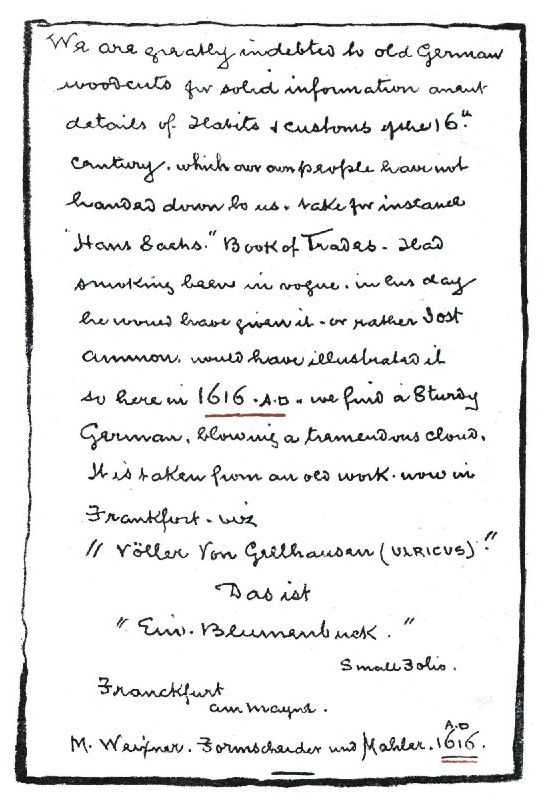 We are greatly indebted to old German
woodcuts for solid information anent
details of Habits & customs of the 16th
century. which our own people have not
handed down to us. take for instance
"Hans Sachs." Book of Trades - Had
smoking been in vogue. in his day
he would have given it - or rather Jost
Ammon. would have illustrated it
so here in 1616. A.D. we find a Sturdy
German. blowing a tremendous cloud.
It is taken from an old work. now in
Frankfort - viz
"Völler Von Gellhausen (ULRICUS)."
Das ist
"Ein. Blumenbuck."
Small Folio.
Franckfurt
am Mayne.
M. Weixner. Formscheider und Mahler. A.D 1616.